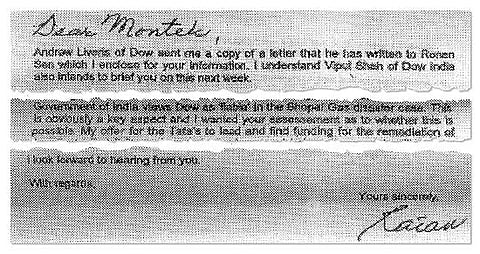 Dear Montek,
Andrew Liveris of Dow sent me a copy of a letter that he has written to Ronen
Sen which I enclose for your information. I understand Vipul Shah of Dow India
also intends to brief you on this next week.
Government of India views Dow as liable in the Bhopal Gas disaster case. This
is obviously a key aspect and I wanted your assessement as to whether this is
possible. My offer for the Tata's to lead and find funding for the remediation of
I look forward to hearing from you.
With regards,
Yours sincerely,